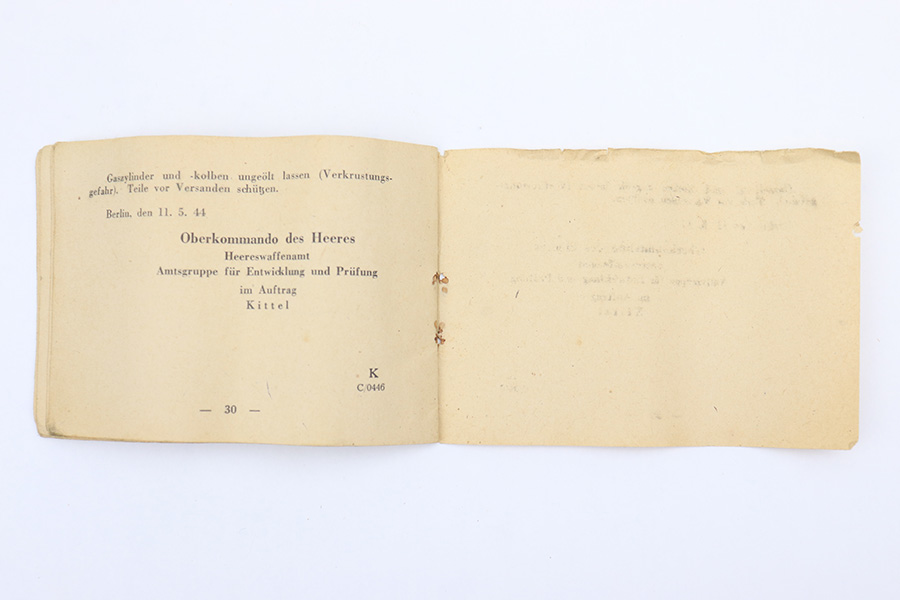 Gaszylinder und -kolben ungeölt lassen (Verkrustungs-
gefahr). Teile vor Versanden schützen.
Berlin, den 11. 5. 44
Oberkommando des Heeres
Heereswaffenamt
Amtsgruppe für Entwicklung und Prüfung
im Auftrag
Kittel
K
C/0446
— 30 —